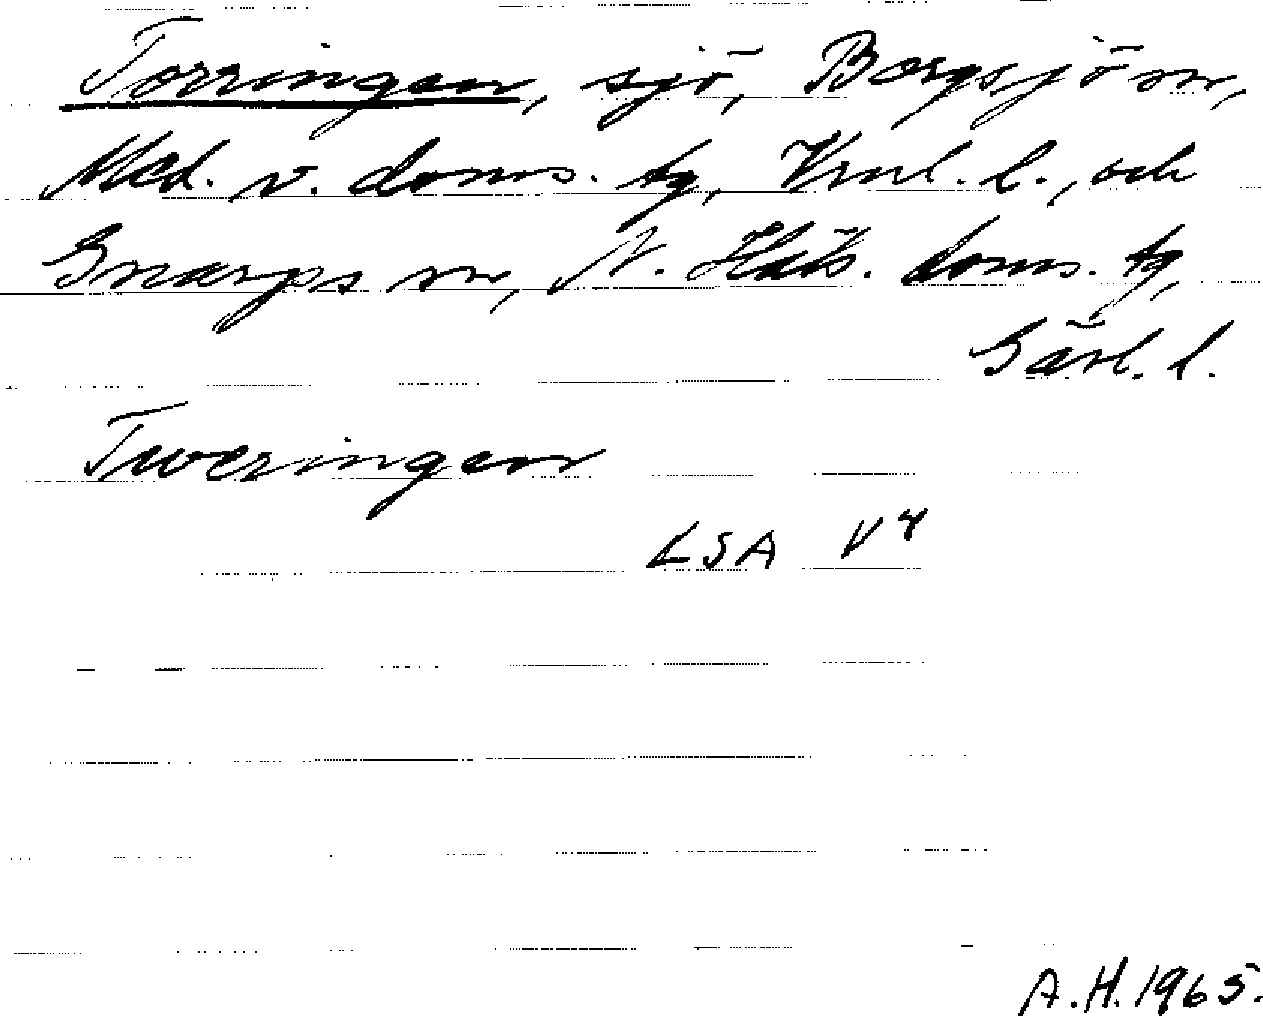 Torringen, sjö, Borgsjö sn,
Med. v. doms. tg, Vnrl. l., och
Gnarps sn, N. Häls. doms. tg,
Gävl. l.
Tweringen
LSA V4
A.H. 1965.